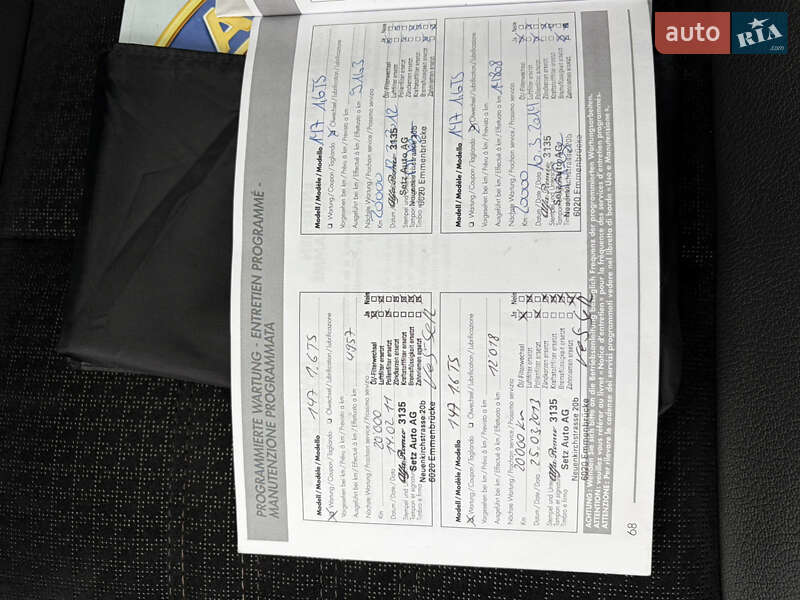 auto RIA.com
PROGRAMMIERTE WARTUNG - ENTRETIEN PROGRAMMÉ -
MANUTENZIONE PROGRAMMATA
Modell / Modèle / Modello 147 1.6 TS
Wartung / Coupon / Tagliando Ölwechsel / Lubrification / Lubrificazione
Vorgesehen bei km / Prévu à km / Previsto a km
Ausgeführt bei km / Effectué à km / Effettuato a km 4957
Nächste Wartung / Prochain service / Prossimo servizio
Km 20000
Datum / Date / Data 14.02.11
Ja Nein
Öl/Filterwechsel
Luftfilter ersetzt
Pollenfilter ersetzt
Zündkerzen ersetzt
Kraftstofffilter ersetzt
Bremsflüssigkeit ersetzt
Zahnriemen ersetzt
Alfa Romeo 3135
Setz Auto AG
Neuenkirchstrasse 20b
6020 Emmenbrücke
Modell / Modèle / Modello 147 1.6 TS
Wartung / Coupon / Tagliando Ölwechsel / Lubrification / Lubrificazione
Vorgesehen bei km / Prévu à km / Previsto a km
Ausgeführt bei km / Effectué à km / Effettuato a km
Nächste Wartung / Prochain service / Prossimo servizio
Km 20000
Datum / Date / Data
Ja Nein
Öl/Filterwechsel
Luftfilter ersetzt
Pollenfilter ersetzt
Zündkerzen ersetzt
Kraftstofffilter ersetzt
Bremsflüssigkeit ersetzt
Zahnriemen ersetzt
Alfa Romeo 3135
Setz Auto AG
6020 Emmenbrücke
Modell / Modèle / Modello 147 1.6 TS
Wartung / Coupon / Tagliando Ölwechsel / Lubrification / Lubrificazione
Vorgesehen bei km / Prévu à km / Previsto a km
Ausgeführt bei km / Effectué à km / Effettuato a km 12'018
Nächste Wartung / Prochain service / Prossimo servizio
Km 20000 Km
Datum / Date / Data 25.03.2013
Ja Nein
Öl/Filterwechsel
Luftfilter ersetzt
Pollenfilter ersetzt
Zündkerzen ersetzt
Kraftstofffilter ersetzt
Bremsflüssigkeit ersetzt
Zahnriemen ersetzt
Alfa Romeo 3135
Setz Auto AG
Neuenkirchstrasse 20b
6020 Emmenbrücke
Modell / Modèle / Modello 147 1.6 TS
Wartung / Coupon / Tagliando Ölwechsel / Lubrification / Lubrificazione
Vorgesehen bei km / Prévu à km / Previsto a km
Ausgeführt bei km / Effectué à km / Effettuato a km
Nächste Wartung / Prochain service / Prossimo servizio
Km 20000
Datum / Date / Data 10.3.2014
Ja Nein
Öl/Filterwechsel
Luftfilter ersetzt
Pollenfilter ersetzt
Zündkerzen ersetzt
Kraftstofffilter ersetzt
Bremsflüssigkeit ersetzt
Zahnriemen ersetzt
Alfa Romeo 3135
Setz Auto AG
6020 Emmenbrücke
ACHTUNG: Wenden Sie sich bitte an die Betriebsanleitung bezüglich Frequenz der programmierten Wartungsarbeiten.
ATTENTION: veuillez vous référer au livret « Notice d'entretien » pour la fréquence des services d'entretien programmés.
ATTENZIONE: Per rilevare le cadenze dei servizi programmati vedere nel libretto di bordo « Uso e Manutenzione ».
68